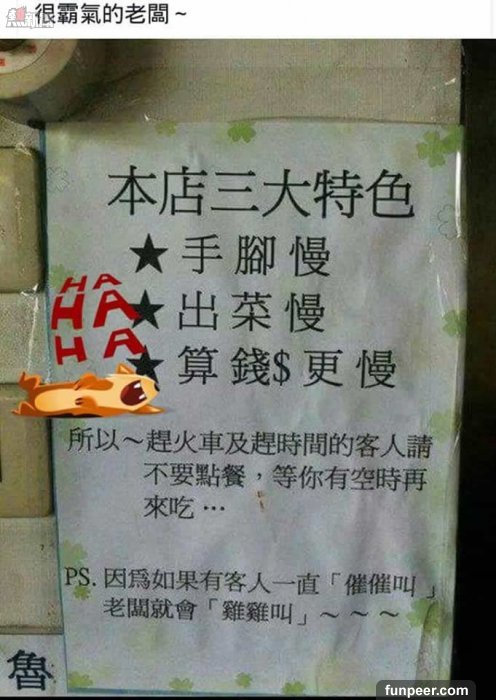 很霸氣的老闆~
本店三大特色
★手腳慢
★出菜慢
★算錢$更慢
HA
HA
HA
所以~趕火車及趕時間的客人請
不要點餐,等你有空時再
來吃…
PS.因爲如果有客人一直「催催叫」
老闆就會「雞雞叫」~~~
魯
funpeer.com